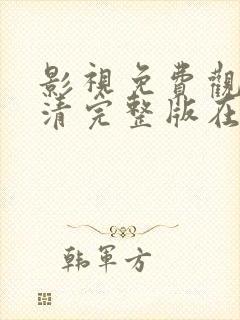 影視免費觀
清完整版在
韩軍方